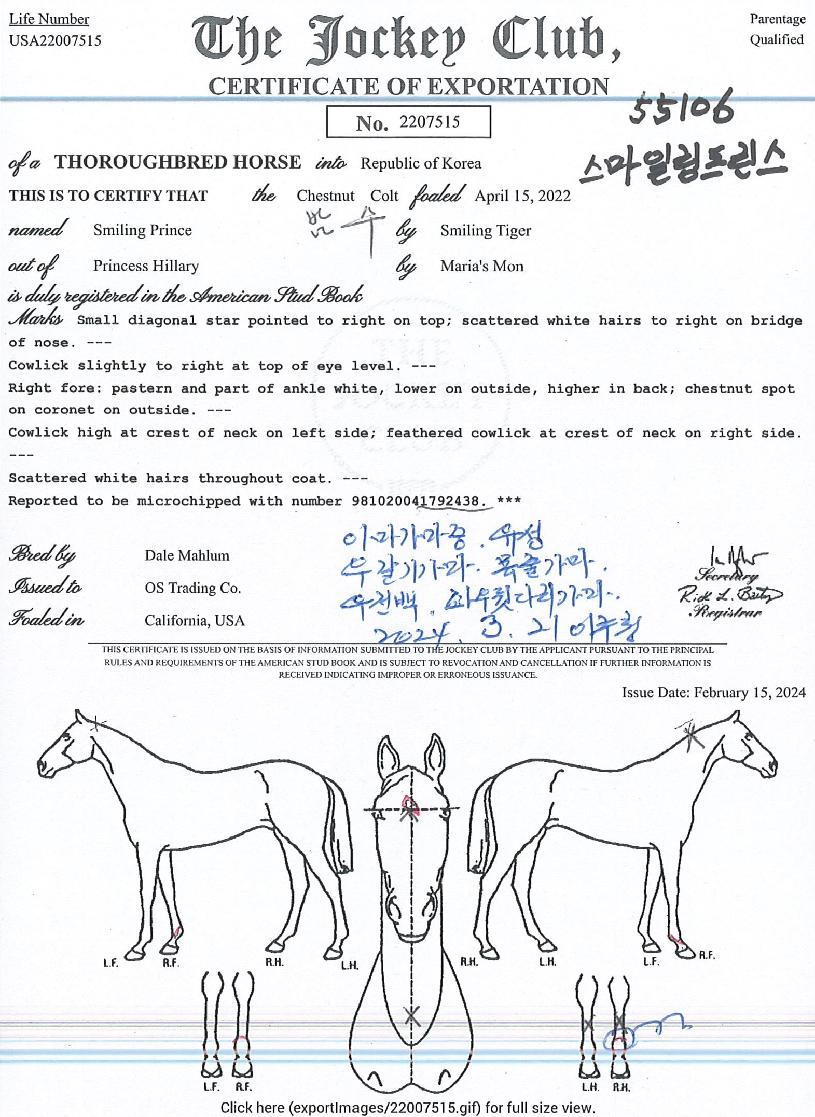 Life Number
USA22007515
The Jockey Club,
Parentage
Qualified
CERTIFICATE OF EXPORTATION
No. 2207515
55106
스마일링프린스
of a THOROUGHBRED HORSE into Republic of Korea
THIS IS TO CERTIFY THAT the Chestnut Colt foaled April 15, 2022
named Smiling Prince by Smiling Tiger
out of Princess Hillary by Maria's Mon
is duly registered in the American Stud Book
Marks Small diagonal star pointed to right on top; scattered white hairs to right on bridge
of nose. ---
Cowlick slightly to right at top of eye level. ---
Right fore: pastern and part of ankle white, lower on outside, higher in back; chestnut spot
on coronet on outside. ---
Cowlick high at crest of neck on left side; feathered cowlick at crest of neck on right side.
---
Scattered white hairs throughout coat. ---
Reported to be microchipped with number 981020041792438. ***
이마가마중. 유성
우갈기가마. 목줄가마.
우전백. 좌우뒷다리가마.
2024. 3. 21
Bred by Dale Mahlum
Issued to OS Trading Co.
Foaled in California, USA
Secretary
Registrar
THIS CERTIFICATE IS ISSUED ON THE BASIS OF INFORMATION SUBMITTED TO THE JOCKEY CLUB BY THE APPLICANT PURSUANT TO THE PRINCIPAL
RULES AND REQUIREMENTS OF THE AMERICAN STUD BOOK AND IS SUBJECT TO REVOCATION AND CANCELLATION IF FURTHER INFORMATION IS
RECEIVED INDICATING IMPROPER OR ERRONEOUS ISSUANCE.
Issue Date: February 15, 2024
L.F. R.F. R.H. L.H. R.H. L.H. L.F. R.F.
L.F. R.F. L.H. R.H.
Click here (exportImages/22007515.gif) for full size view.